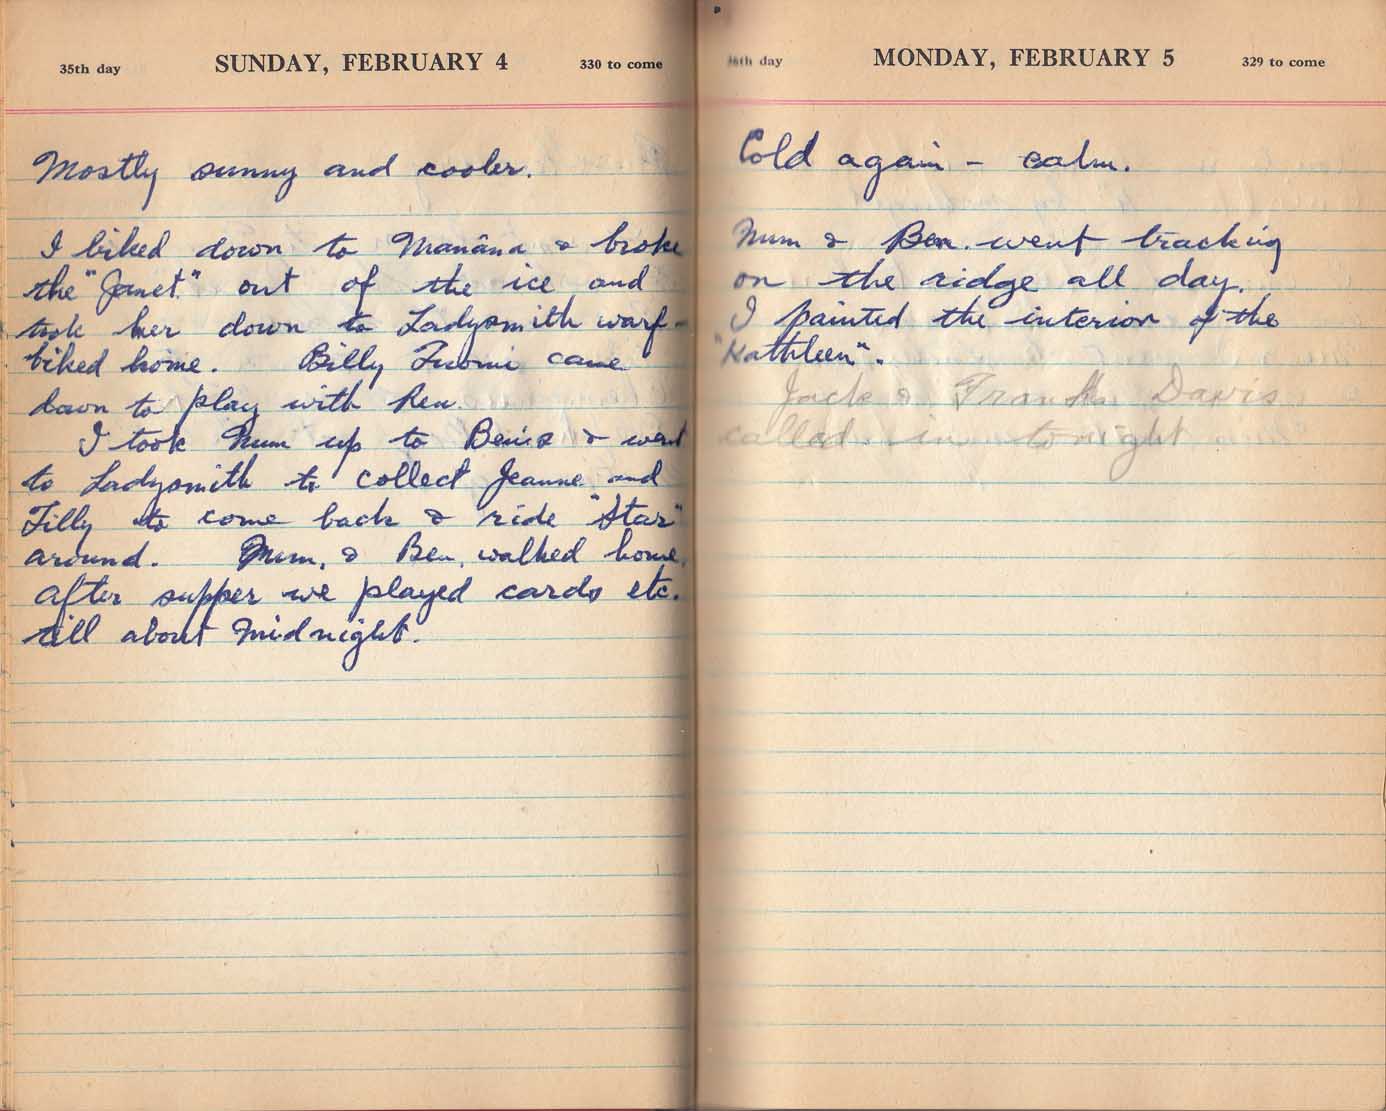 35th day SUNDAY, FEBRUARY 4 330 to come
Mostly sunny and cooler.
I biked down to Manâna & broke
the "Janet" out of the ice and
took her down to Ladysmith warf -
biked home. Billy Tuomi came
down to play with Rex.
I took Mum up to Benis & went
to Ladysmith to collect Jeanne and
Tilly to come back & ride "Star"
around. Mum, & Ben, walked home.
After supper we played cards etc.
till about midnight.
36th day MONDAY, FEBRUARY 5 329 to come
Cold again - calm.
Mum & Ben. went tracking
on the ridge all day.
I painted the interior of the
"Kathleen".
Jack & Frank Davis
called in tonight